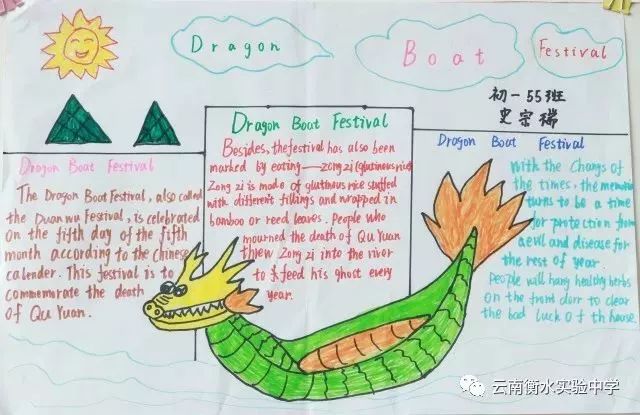 Dragon
Boat
Festival
初一55班
史宗瑞
Dragon Boat Festival
The Dragon Boat Festival, also called
the Duan wu Festival, is celebrated
on the fifth day of the fifth
month according to the chinese
calender. This festival is to
commemorate the death
of Qu Yuan.
Dragon Boat Festival
Besides, the festival has also been
marked by eating——zong zi (glutinous rice)
Zong zi is made of glutinous rice stuffed
with different fillings and wrapped in
bamboo or reed leaves. People who
mourned the death of Qu Yuan
threw Zong zi into the river
to feed his ghost every
year.
Dragon Boat Festival
with the Changs of
the times, the memorial
turns to be a time
for protection from
aevil and disease for
the rest of year.
people will hang healthy herbs
on the front dorr to clear
the bad luck of th house.
云南衡水实验中学